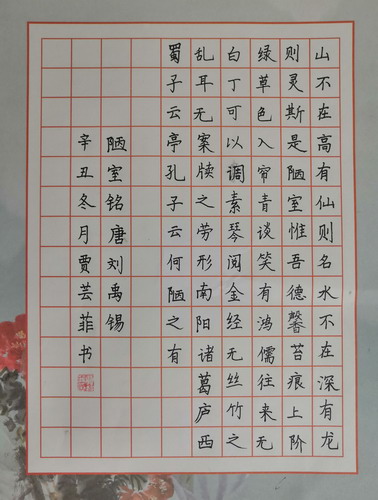 山不在高有仙则名水不在深有龙
则灵斯是陋室惟吾德馨苔痕上阶
绿草色入帘青谈笑有鸿儒往来无
白丁可以调素琴阅金经无丝竹之
乱耳无案牍之劳形南阳诸葛庐西
蜀子云亭孔子云何陋之有
陋室铭唐刘禹锡
辛丑冬月贾芸菲书